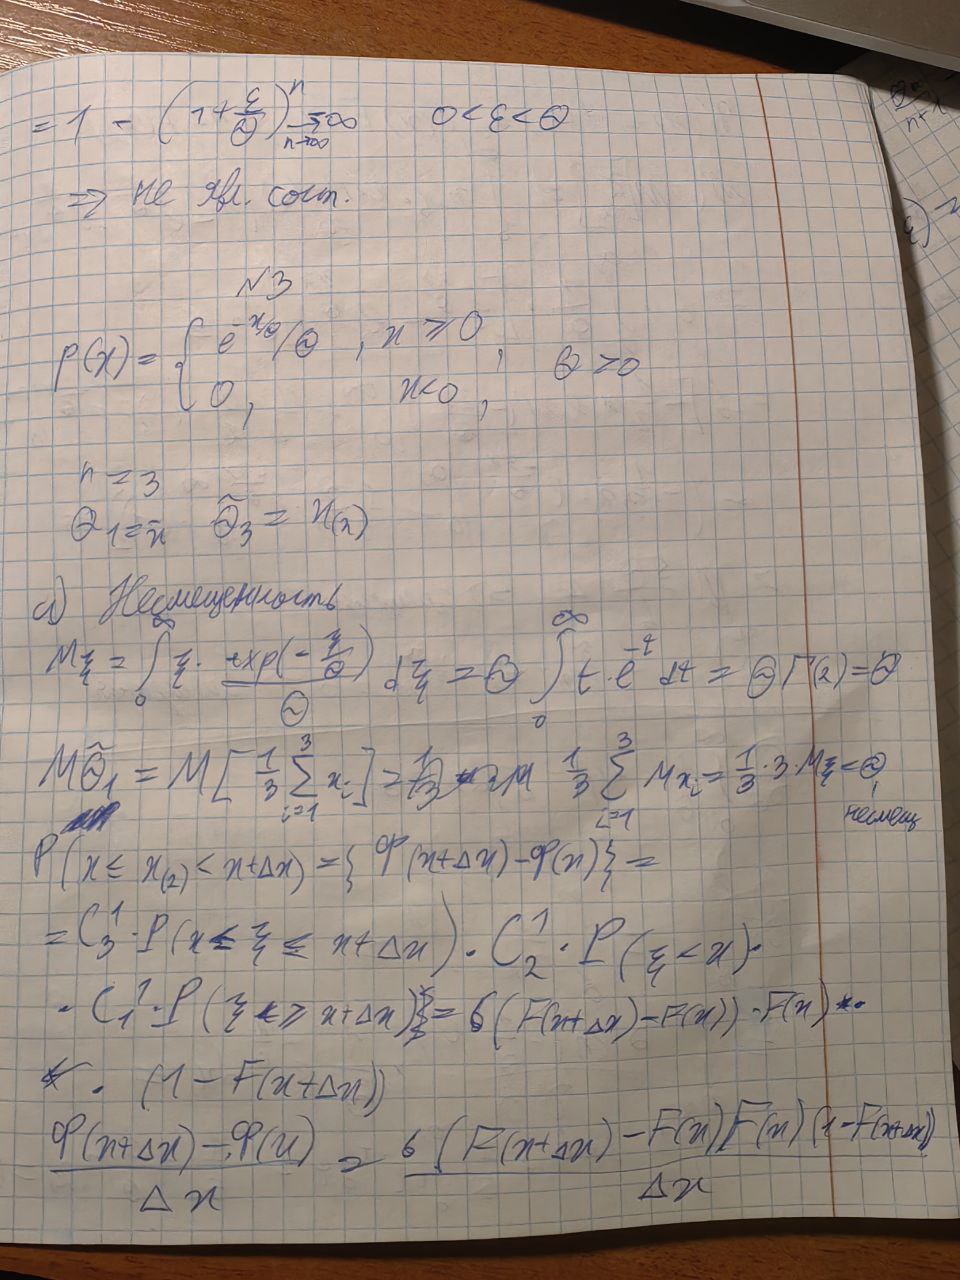 = 1 - (1+ε/Θ)^n →∞ n→∞ 0<ε<Θ
⇒ не явл. сост.
№3
p(x) = { e^{-x/Θ}/Θ , x ≥ 0 ; Θ > 0
0 , x<0 ,
n = 3
Θ̃1 = x̄ Θ̃3 = x(2)
а) Несмещенность
Mξ = ∫_0^∞ ξ · exp(-ξ/Θ)/Θ dξ = Θ ∫_0^∞ t · e^{-t} dt = Θ Γ(2) = Θ
MΘ̃1 = M[1/3 Σ_{i=1}^3 x_i] = 1/3 Σ_{i=1}^3 M x_i = 1/3 · 3 · Mξ = Θ
несмещ
P(x ≤ x(2) < x+Δx) = { Φ(x+Δx) - Φ(x) } =
= C_3^1 · P(x ≤ ξ ≤ x+Δx) · C_2^1 · P(ξ < x) ·
· C_1^1 · P(ξ ≥ x+Δx) } = 6 (F(x+Δx) - F(x)) · F(x) ·
· (1 - F(x+Δx))
Φ(x+Δx) - Φ(x) / Δx = 6 (F(x+Δx) - F(x)) F(x) (1 - F(x+Δx)) / Δx